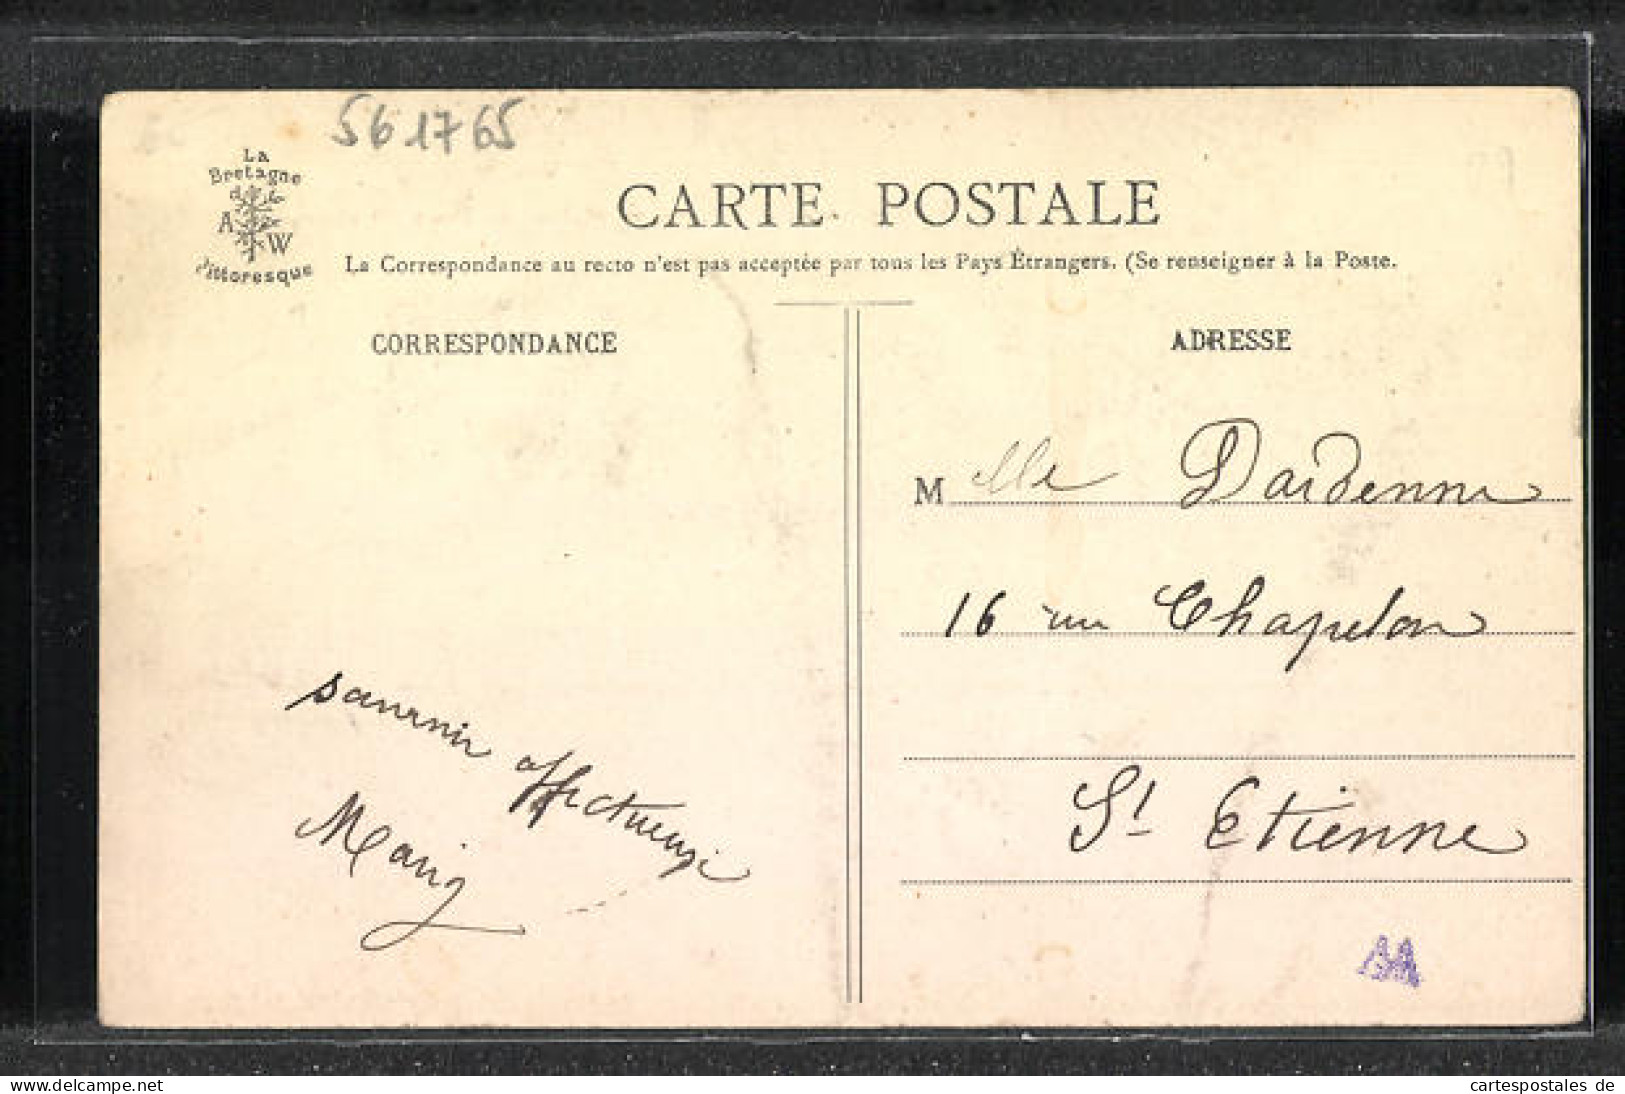 561765
La
Bretagne
A W
Pittoresque
CARTE POSTALE
La Correspondance au recto n'est pas acceptée par tous les Pays Étrangers. (Se renseigner à la Poste.
CORRESPONDANCE
ADRESSE
M lle Dardenne
16 rue Chapelon
St Etienne
souvenir affectueux
cartespostales de